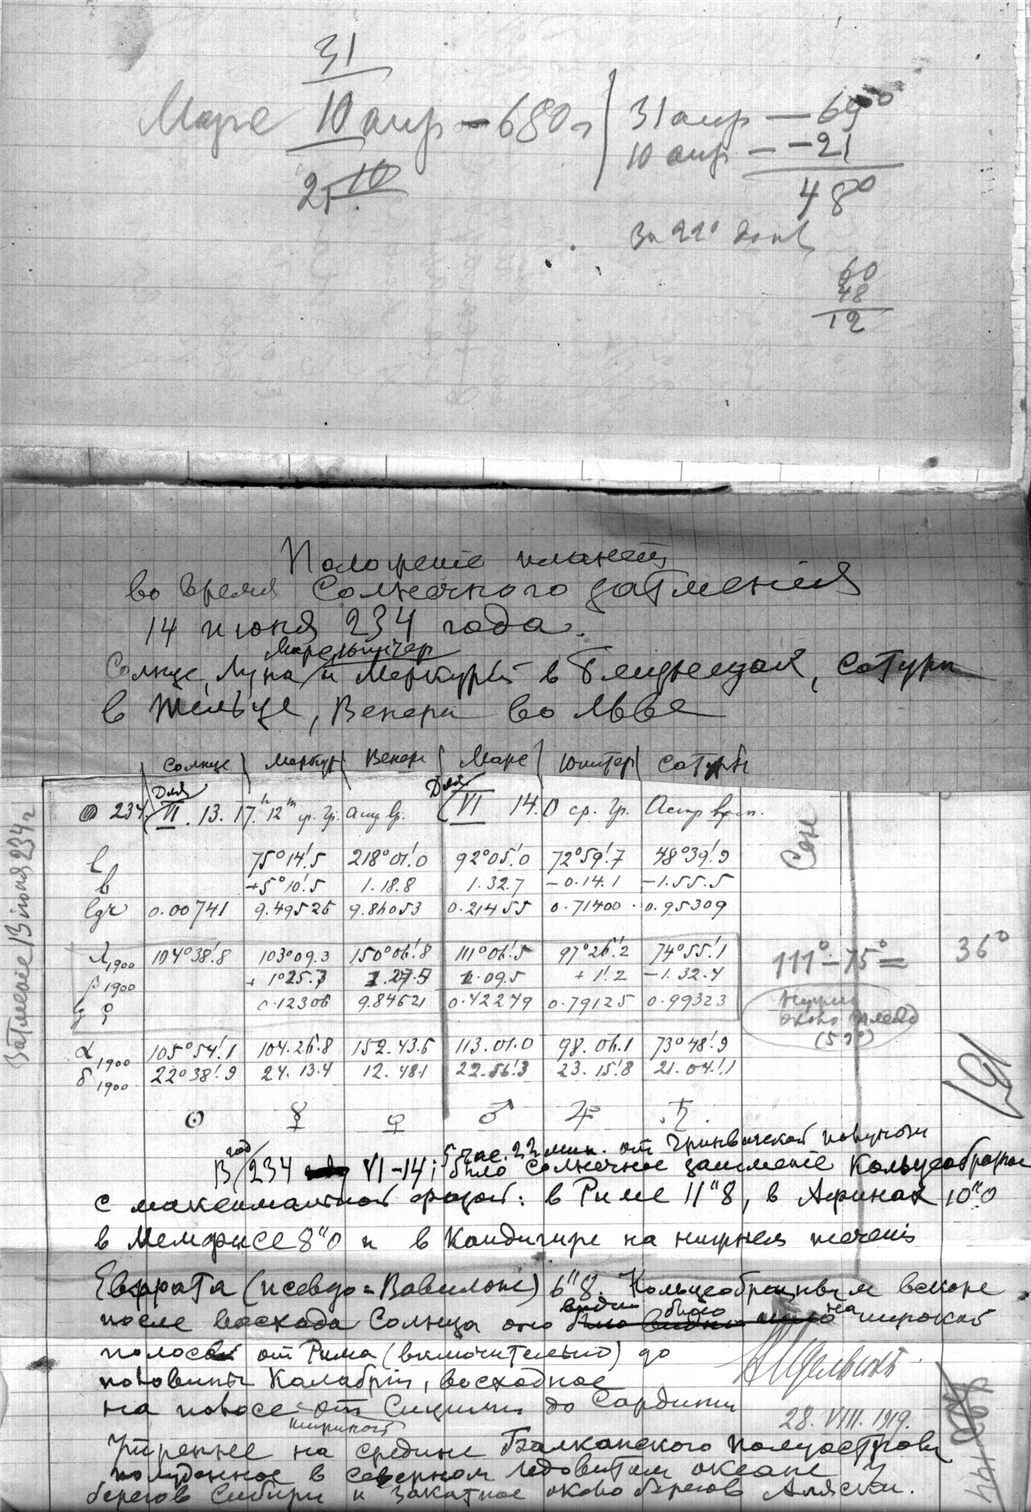 31
Марс 10 апр - 680
31 апр — 69°
10 апр — -21
48°
60
48
12
Положение планет
во время Солнечного затмения
14 июня 234 года.
Марс, Юпитер
Солнце, Луна и Меркурий в Близнецах, Сатурн
в Тельце, Венера во Льве
Солнце Меркур Венера Марс Юпитер Сатурн
234 Для VI. 13. 17h 12m ср. Гр. Для VI 14.0 ср. Гр. Астр врем.
l 75°14'.5 218°01'.0 92°05'.0 72°59'.7 48°39'.9
b +5°10'.5 1.18.8 1.32.7 -0.14.1 -1.55.5
lg r 0.00741 9.49526 9.86053 0.21455 0.71400 0.95309
λ1900 104°38'.8 103°09.3 150°06'.8 111°06'.5 97°26'.2 74°55'.1
β1900 +1°25.7 1.27.5 1.09.5 +1'.2 -1.32.4
0.12306 9.84621 0.42249 0.79125 0.99323
α1900 105°54'.1 104.26.8 152.43.6 113.01.0 98.06.1 73°48'.9
δ1900 22°38'.9 24.13.4 12.48.1 22.56'.3 23.15'.8 21.04'.1
☉ ☿ ♀ ♂ ♃ ♄
111° - 75° = 36°
около
(59°)
Затмение 13 июня 234 г
В год 234 VI-14; 5 час. 22 мин. от Гринвичской полуночи
было солнечное затмение Кольцеобразное
с максимальной фазой: в Риме 11"8, в Афинах 10"0
в Мемфисе 8"0 и в Кандигире на нижнем течении
Евфрата (псевдо-Вавилоне) 6"8. Кольцеобразным вскоре
после восхода Солнца оно видно было на широкой
полосе от Рима (включительно) до
половины Калабрии, восходное
на полосе от Сицилии до Сардинии
28. VIII. 1919.
Утреннее на средине Балканского полуострова
полуденное в северном Ледовитом океане у
берегов Сибири и закатное около берегов Аляски.